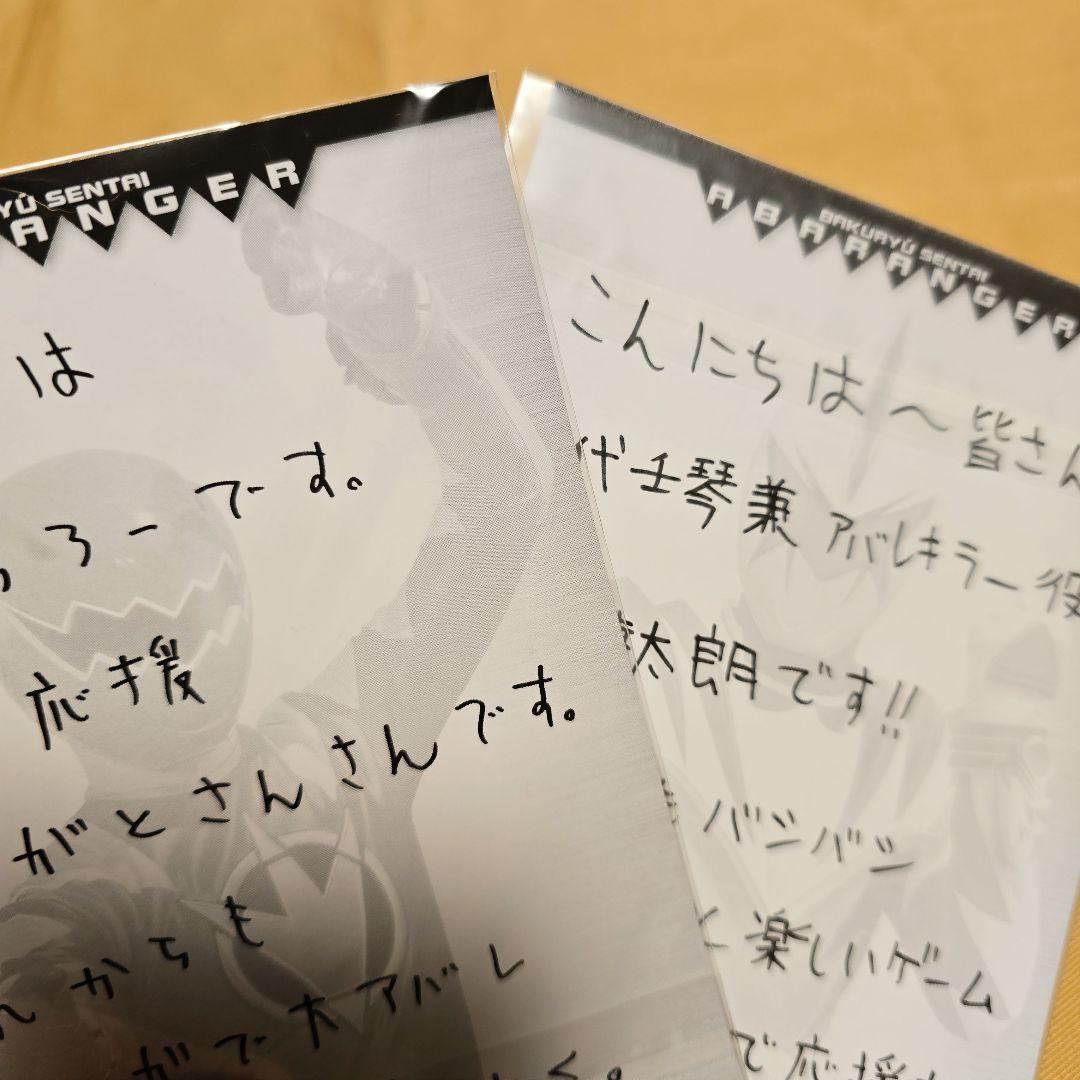 YŪ SENTAI
ANGER
は
ろーです。
応援
がとさんさんです。
んからも
がで大アバレ
く。
BAKURYŪ SENTAI
ABARANGER
こんにちは〜皆さん
壬琴兼アバレキラー役
太朗です!!
バシバシ
と楽しいゲーム
で応援